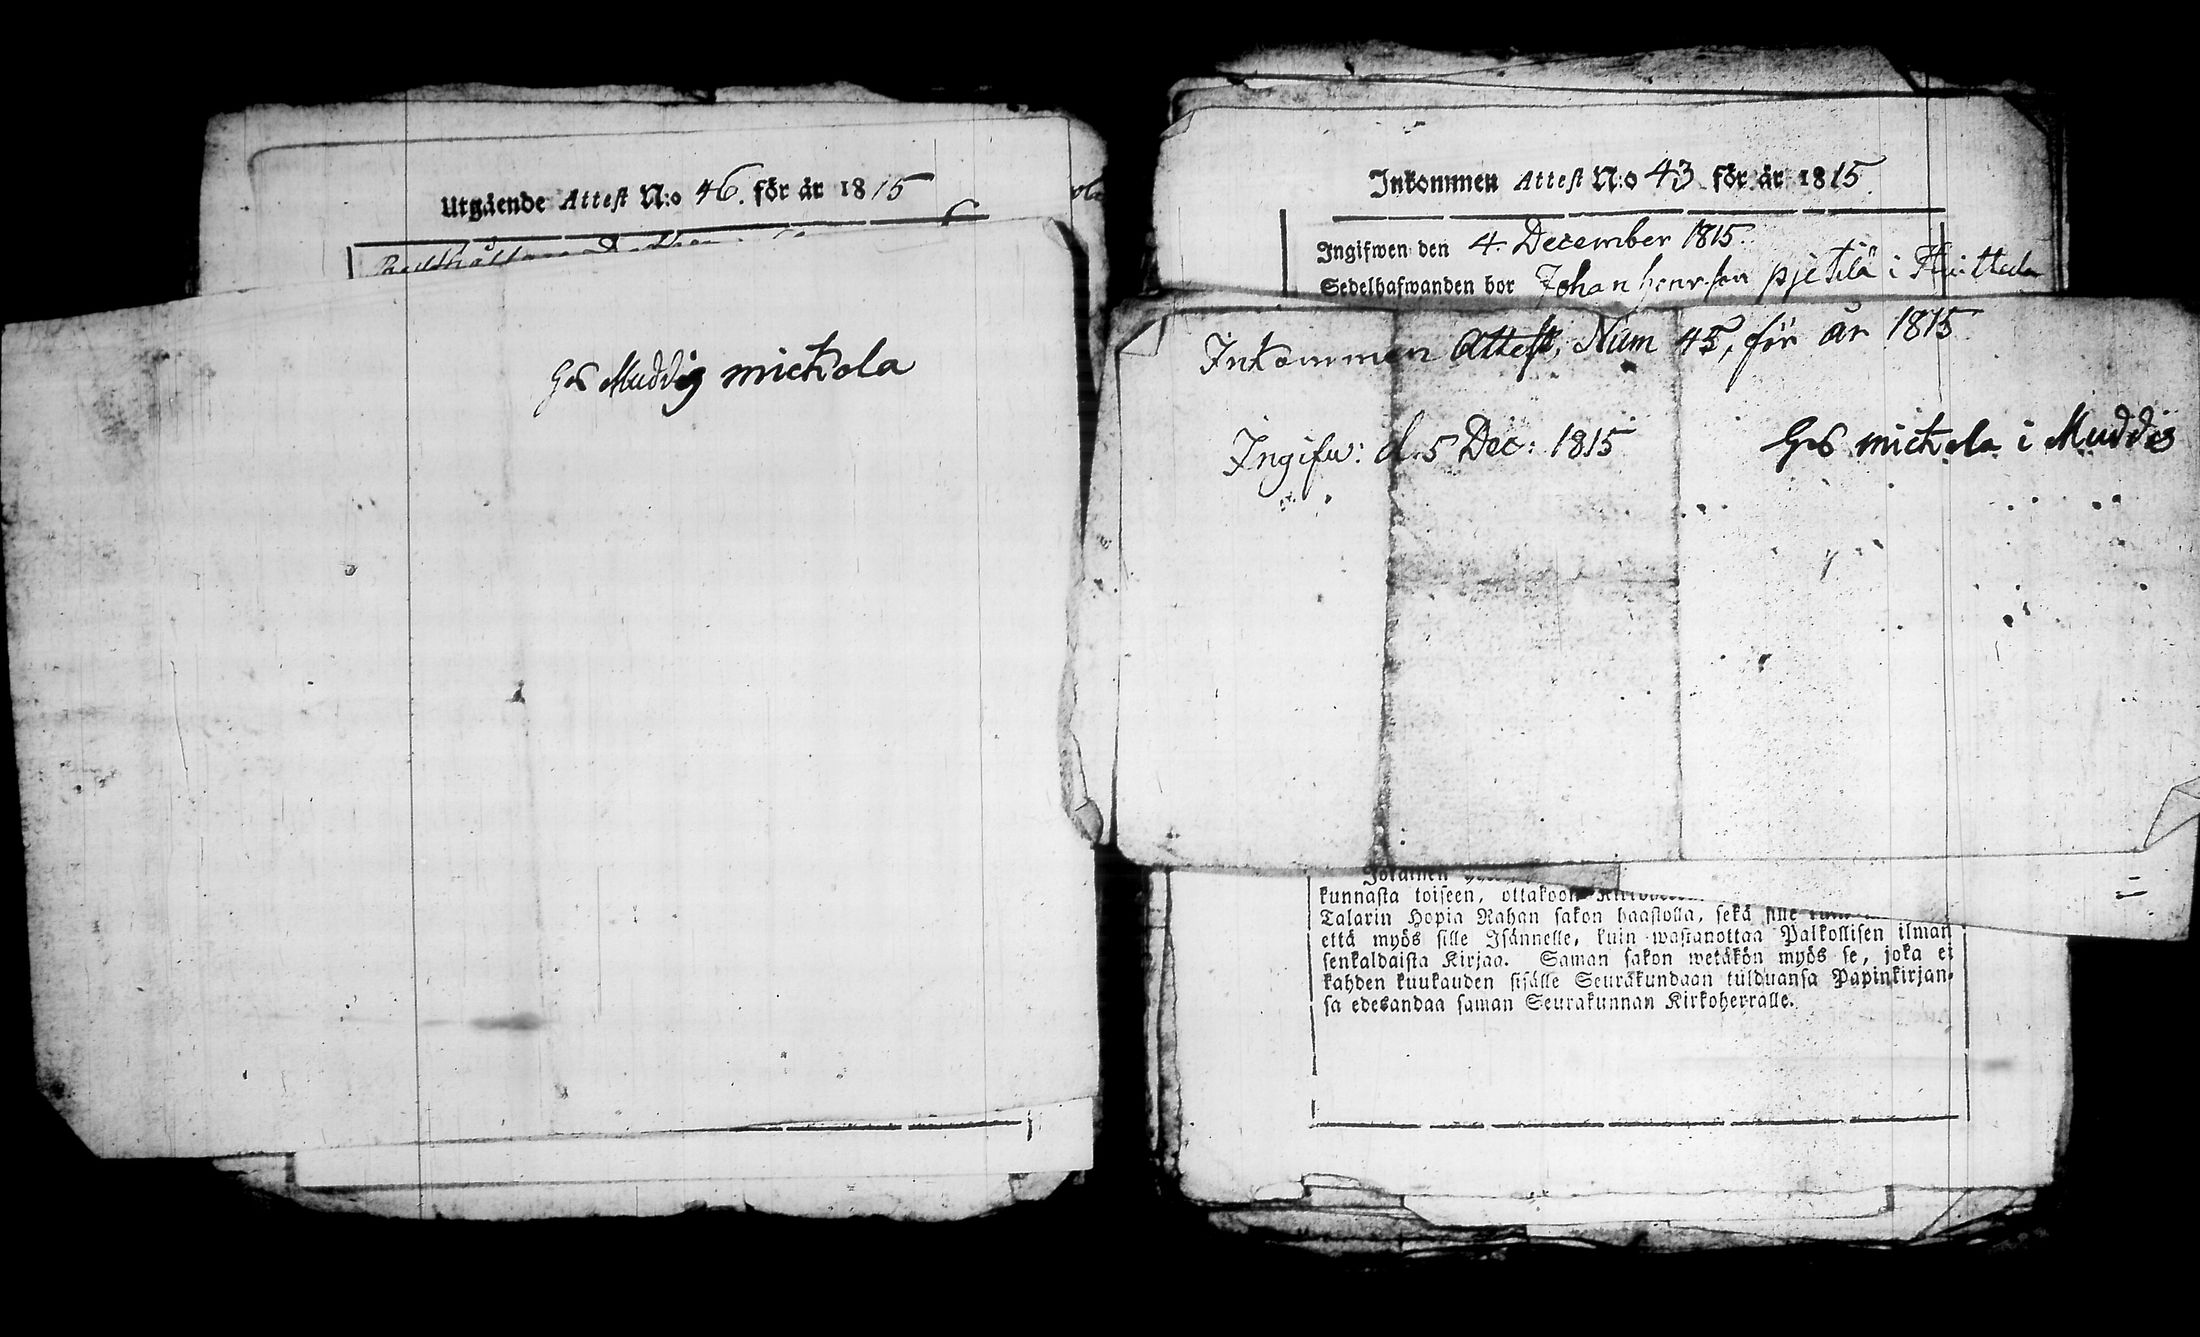 Utgående Attest N:o 46. för år 1815
Gos Muddis mickola
Inkommen Attest N:o 43 för år 1815.
Ingifwen den 4. December 1815.
Sedelhafwanden bor Johan henrsson pjetilä i
Inkommen Attest, Num 45, för år 1815
Ingifw: d. 5 Dec: 1815
Gos mickola i Muddis
Jokainen
kunnasta toiseen, ottakoon
Talarin Hopia Rahan sakon haastolla, sekä sille
että myös sille Isännelle, kuin wastanottaa Palkollisen ilman
senkaldaista Kirjaa. Saman sakon wetäkön myös se, joka ei
kahden kuukauden sisälle Seurakundaan tulduansa Papinkirjan-
sa edesandaa saman Seurakunnan Kirkoherralle.